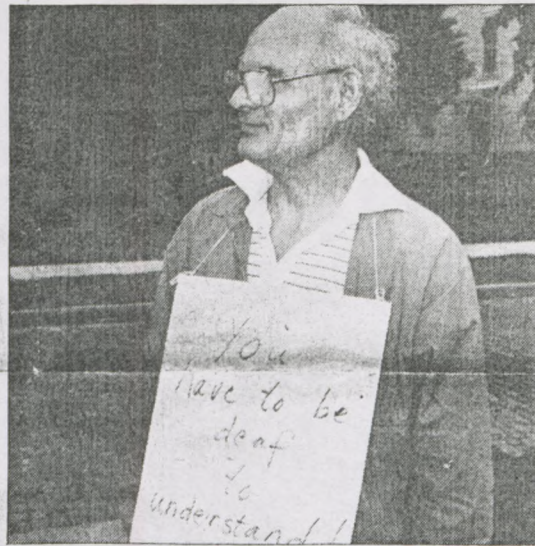 You
have to be
deaf
to
understand!